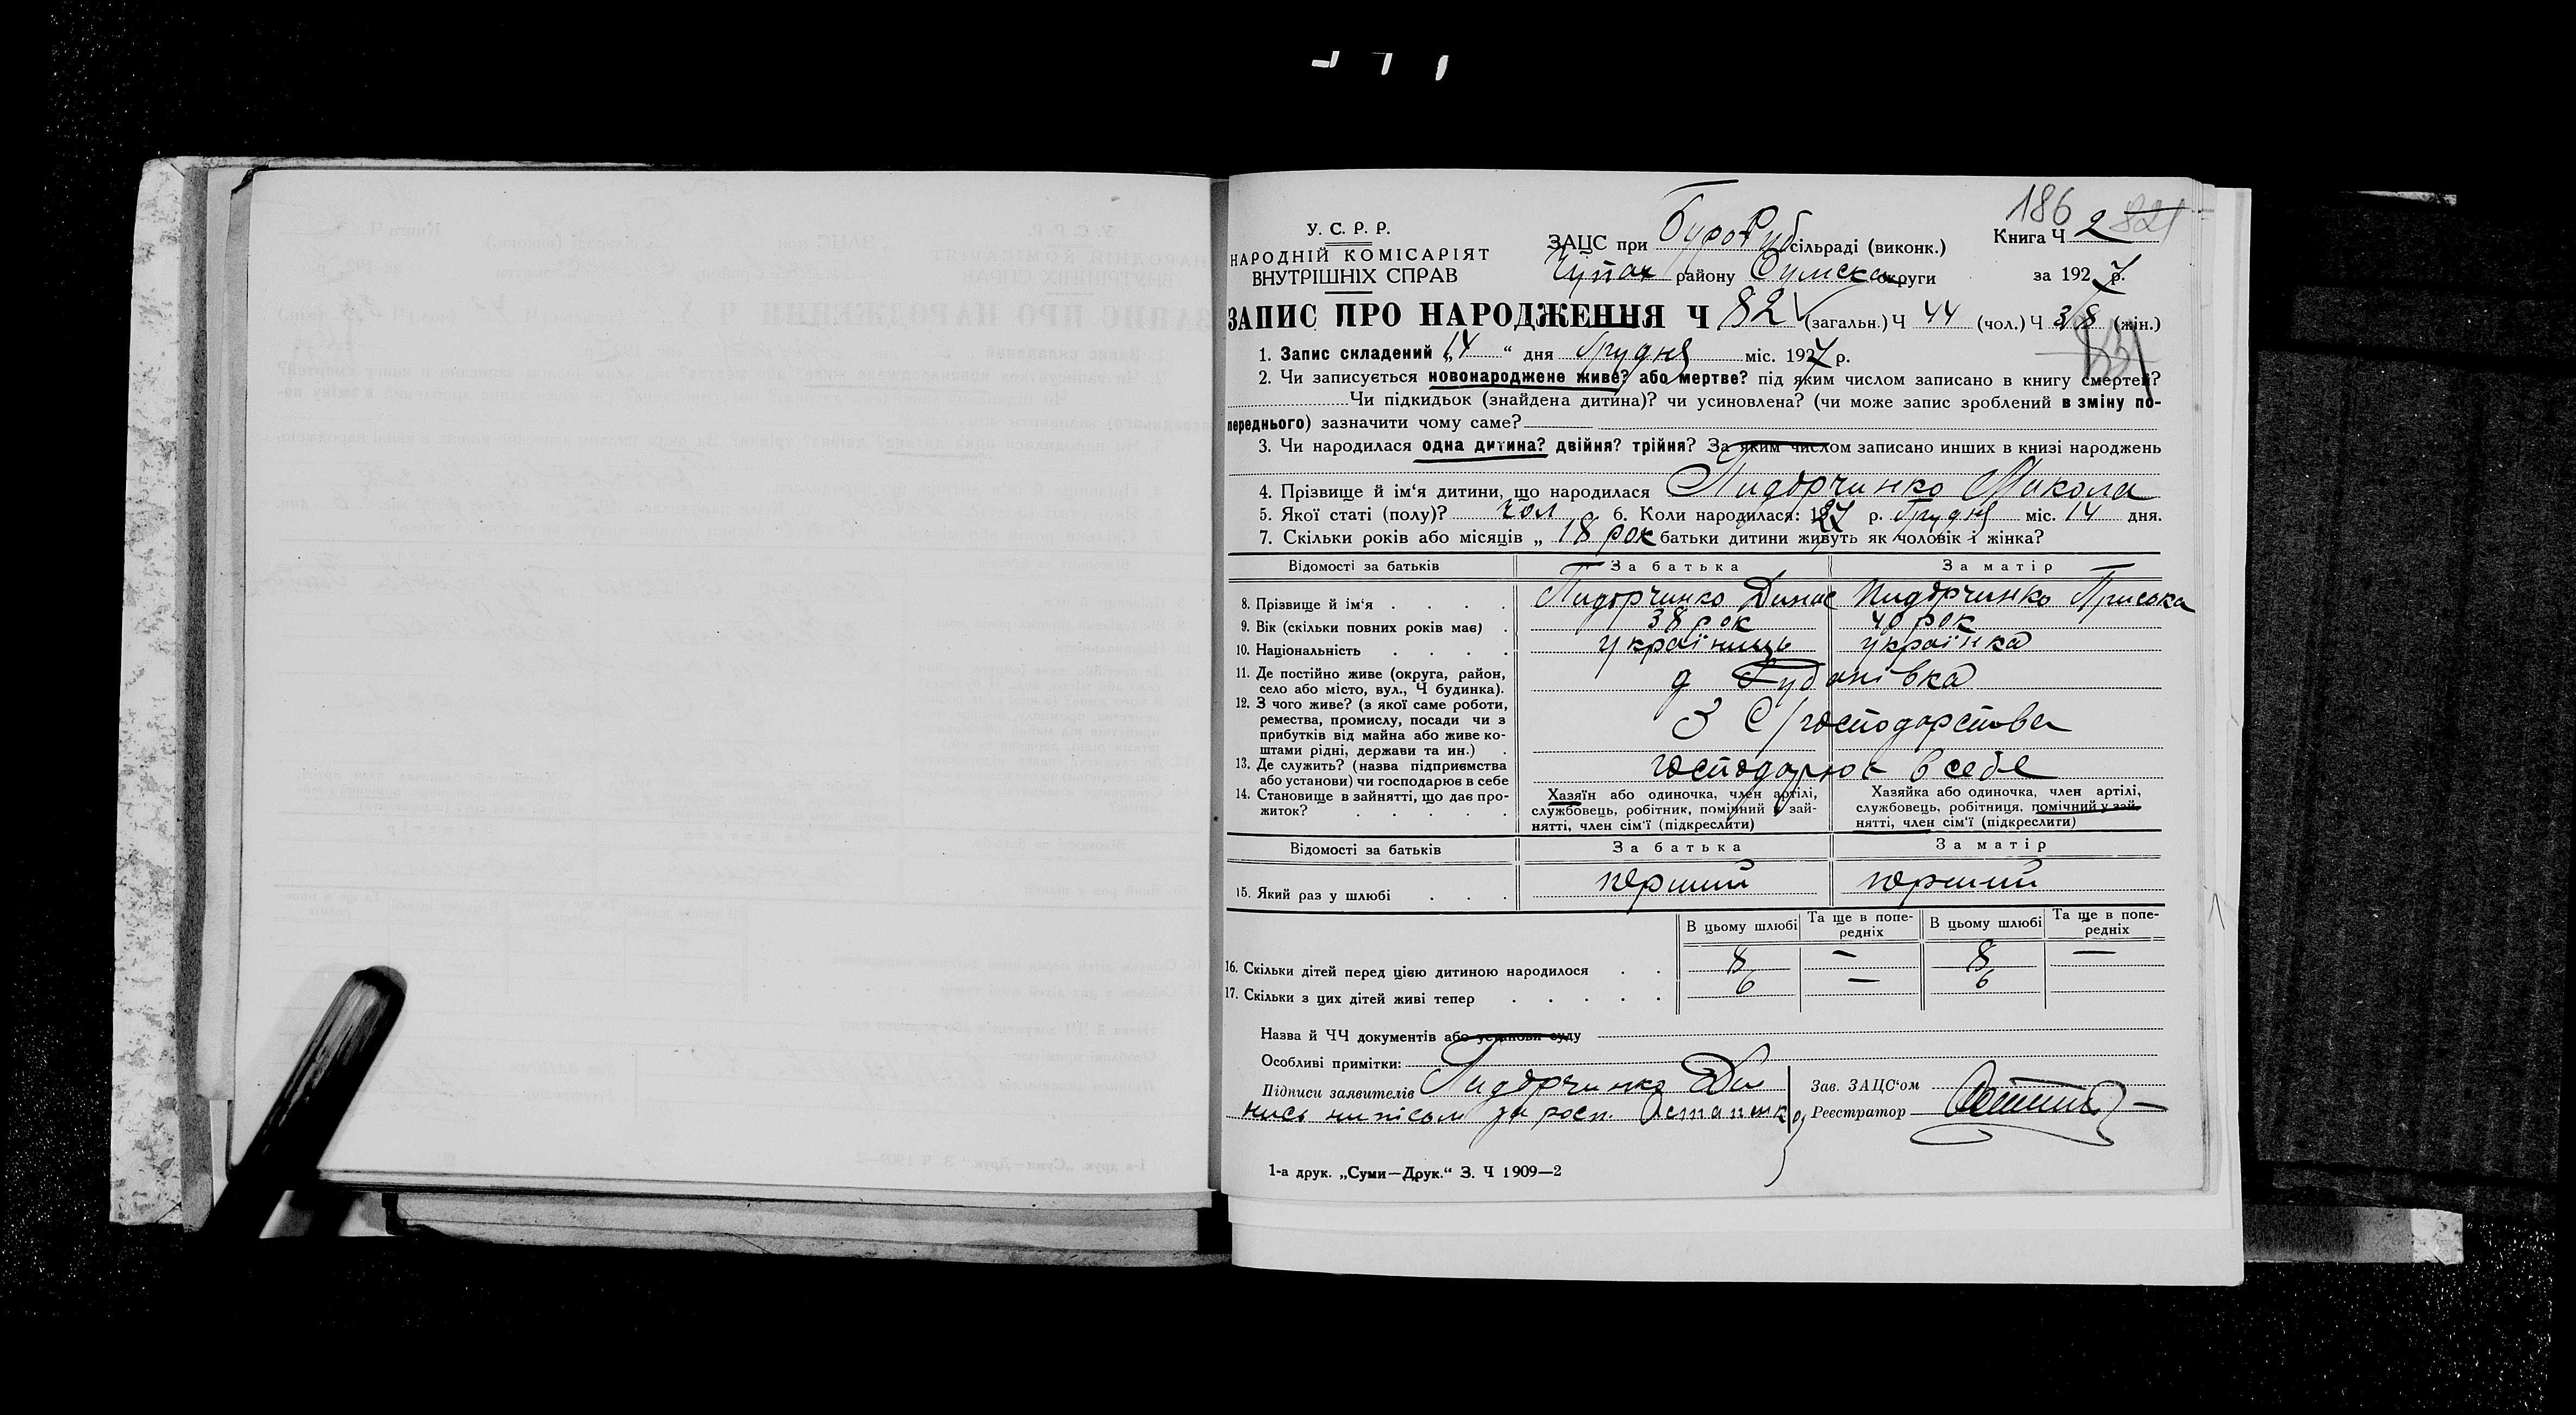 186
У. С. Р. Р.
НАРОДНІЙ КОМІСАРІЯТ
ВНУТРІШНІХ СПРАВ
ЗАЦС при БуроРуб сільраді (виконк.)
Книга Ч 2 821
Чупах району Сумска округи за 1927 р.
ЗАПИС ПРО НАРОДЖЕННЯ Ч 82 (загальн.) Ч 44 (чол.) Ч 38 (жін.)
1. Запис складений „14“ дня Грудня міс. 1927 р.
2. Чи записується новонароджене живе? або мертве? під яким числом записано в книгу смертей?
Чи підкидьок (знайдена дитина)? чи усиновлена? (чи може запис зроблений в зміну по-
переднього) зазначити чому саме?
3. Чи народилася одна дитина? двійня? трійня? За яким числом записано инших в книзі народжень
4. Прізвище й ім'я дитини, що народилася Пидорчинко Микола
5. Якої статі (полу)? чол 6. Коли народилася: 1927 р. Грудня міс. 14 дня.
7. Скільки років або місяців „ 18 рок батьки дитини живуть як чоловік і жінка?
Відомості за батьків За батька За матір
8. Прізвище й ім'я . . . . Пидорчинко Динис Пидорчинко Приська
9. Вік (скільки повних років має) . 38 рок 40 рок
10. Національність . . . . україниць українка
11. Де постійно живе (округа, район,
село або місто, вул., Ч будинка). д
12. З чого живе? (з якої саме роботи,
ремества, промислу, посади чи з
прибутків від майна або живе ко-
штами рідні, держави та ин.) . З С/господарства
13. Де служить? (назва підприємства
або установи) чи господарює в себе господарює в себе
14. Становище в зайнятті, що дає про-
житок? . . . . .
Хазяїн або одиночка, член артілі,
службовець, робітник, помічний в зай-
нятті, член сім'ї (підкреслити)
Хазяйка або одиночка, член артілі,
службовець, робітниця, помічний у зай-
нятті, член сім'ї (підкреслити)
Відомості за батьків За батька За матір
15. Який раз у шлюбі . . . перший перший
В цьому шлюбі Та ще в попе-редніх В цьому шлюбі Та ще в попе-редніх
16. Скільки дітей перед цією дитиною народилося . . 8 — 8 —
17. Скільки з цих дітей живі тепер . . . . . 6 — 6
Назва й ЧЧ документів або установи суду
Особливі примітки:
Підписи заявителів Пидорчинко Ди Зав. ЗАЦС'ом
нись ниписьм за росп. Реєстратор
1-а друк. „Суми—Друк.“ З. Ч 1909—2